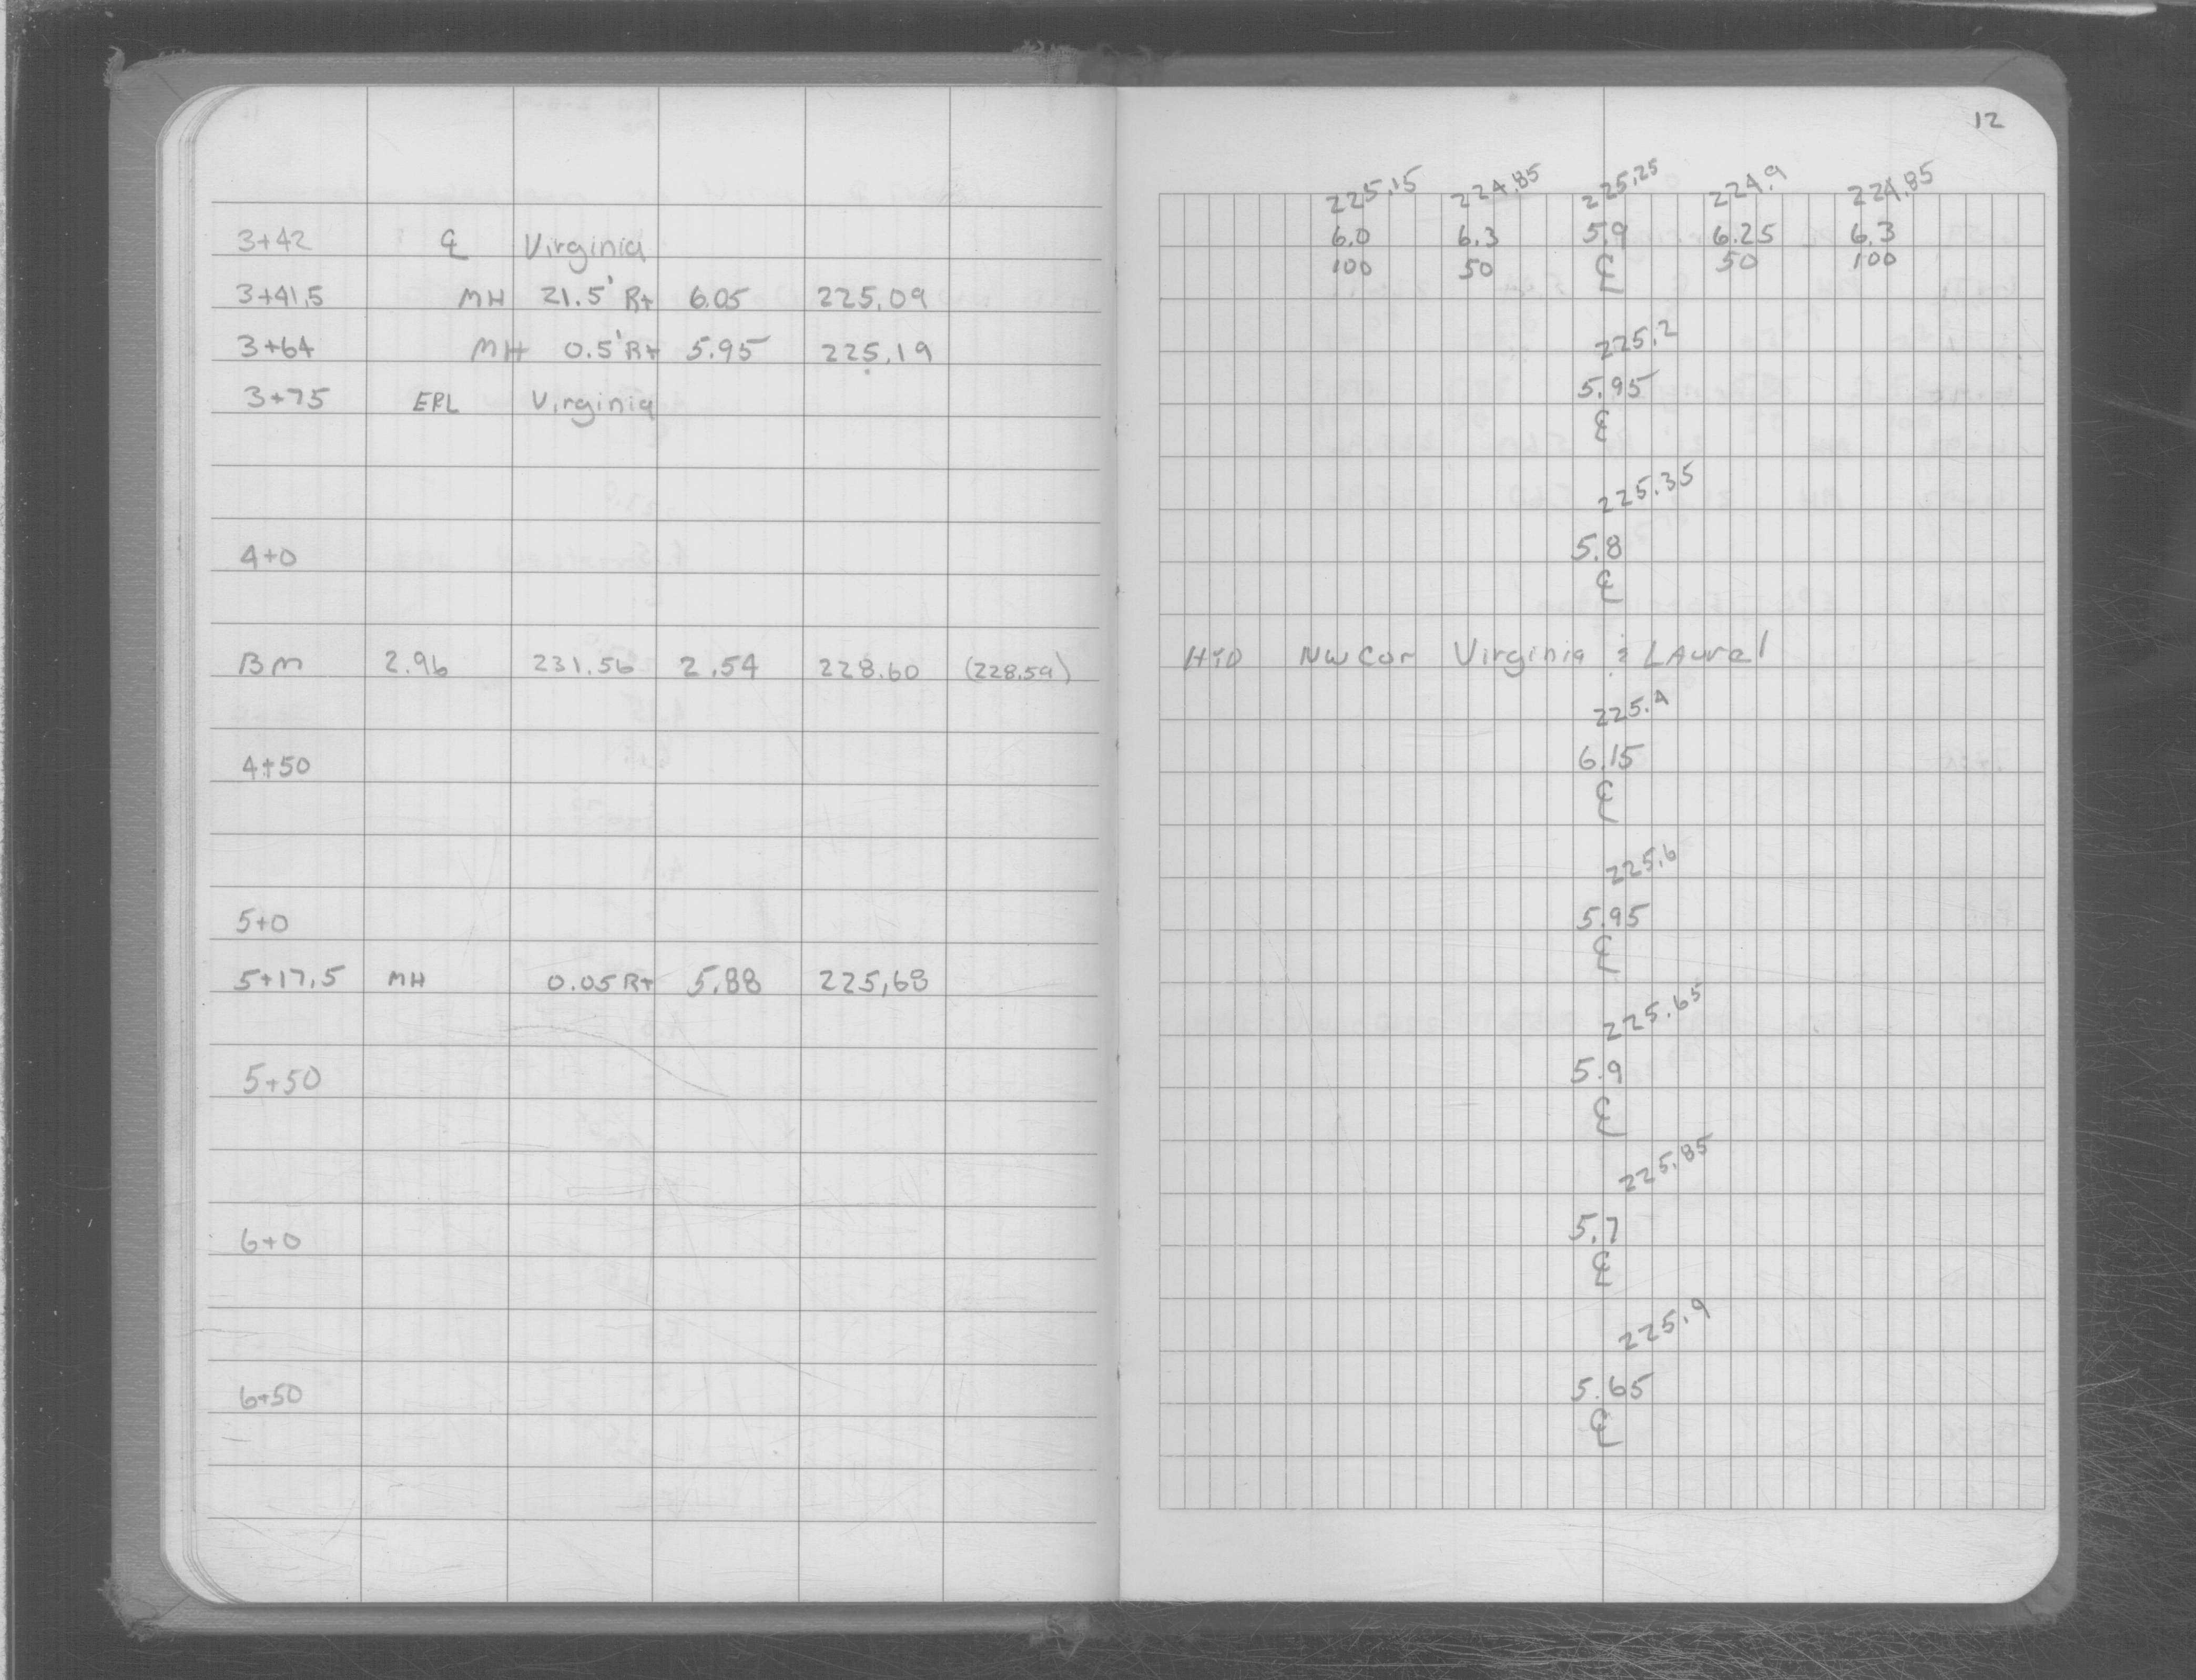 3+42 ℄ Virginia
3+41.5 MH 21.5' Rt 6.05 225.09
3+64 MH 0.5' Rt 5.95 225.19
3+75 EPL Virginia
4+0
BM 2.96 231.56 2.54 228.60 (228.59)
4+50
5+0
5+17.5 MH 0.05 Rt 5.88 225.68
5+50
6+0
6+50
12
225.15 224.85 225.25 224.9 224.85
6.0 6.3 5.9 6.25 6.3
100 50 ℄ 50 100
225.2
5.95
℄
225.35
5.8
℄
HYD NW Cor Virginia & Laurel
225.4
6.15
℄
225.6
5.95
℄
225.65
5.9
℄
225.85
5.7
℄
225.9
5.65
℄